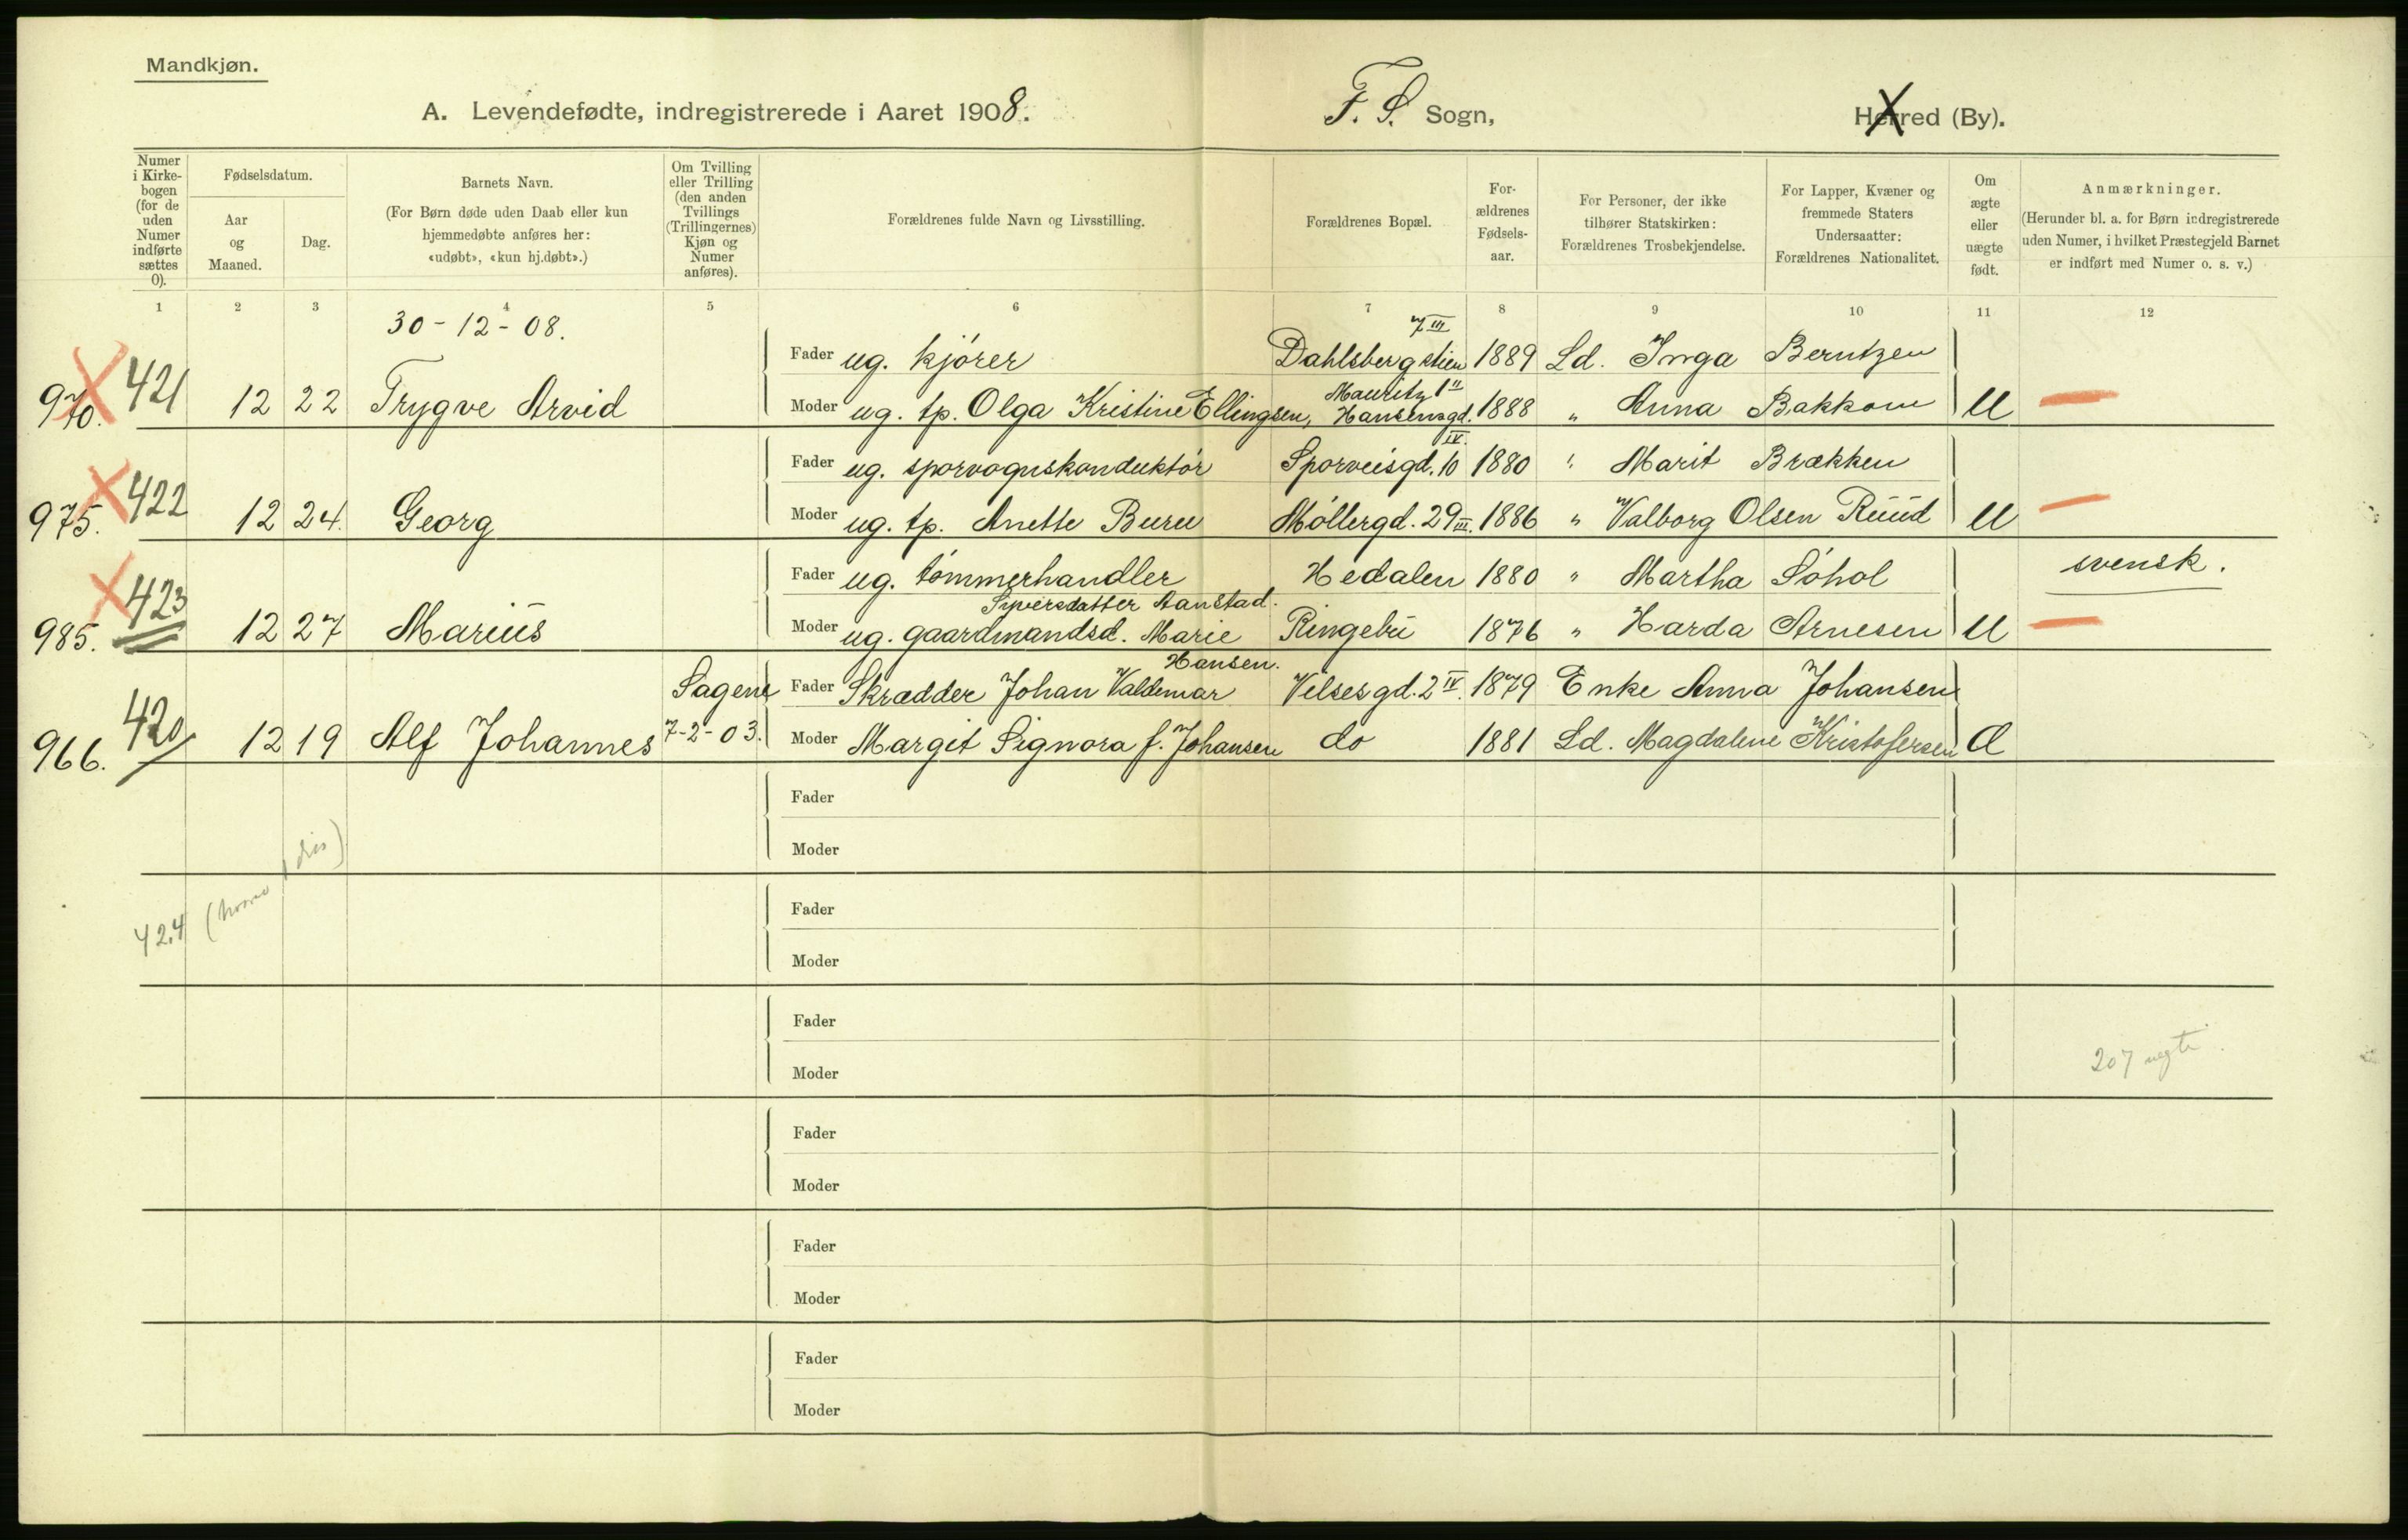 Mandkjøn.
A. Levendefødte, indregistrerede i Aaret 1908. F. S. Sogn, Herred (By).
Numer i Kirkebogen (for de uden Numer indførte sættes 0).
Fødselsdatum.
Aar og Maaned.
Dag.
Barnets Navn.
(For Børn døde uden Daab eller kun hjemmedøbte anføres her: «udøbt», «kun hj.døbt».)
Om Tvilling eller Trilling (den anden Tvillings (Trillingernes) Kjøn og Numer anføres).
Forældrenes fulde Navn og Livsstilling.
Forældrenes Bopæl.
Forældrenes Fødselsaar.
For Personer, der ikke tilhører Statskirken: Forældrenes Trosbekjendelse.
For Lapper, Kvæner og fremmede Staters Undersaatter: Forældrenes Nationalitet.
Om ægte eller uægte født.
Anmærkninger.
(Herunder bl. a. for Børn indregistrerede uden Numer, i hvilket Præstegjeld Barnet er indført med Numer o. s. v.)
1 2 3 4 5 6 7 8 9 10 11 12
30-12-08.
Fader ug. kjører Dahlsbergstien 7 III 1889 Ld. Inga Berntzen
970. 421 12 22 Trygve Arvid Moder ug. tp. Olga Kristine Ellingsen, Mauritz Hansensgd. 1 II 1888 " Anna Bakkom U
Fader ug. sporvognskonduktør Sporveisgd. 10 IV. 1880 " Marit Brækken
975. 422 12 24. Georg Moder ug. tp. Anette Buru Møllergd. 29 III. 1886 " Valborg Olsen Ruud U
Fader ug. tømmerhandler Hedalen 1880 " Martha Søhol svensk.
985. 423 12 27 Marius Moder ug. gaardmandsd. Marie Syversdatter Aanstad. Ringebu 1876 " Harda Arnesen U
Sagene Fader Skrædder Johan Valdemar Hansen. Velsesgd. 2 IV. 1879 Enke Anna Johansen
966. 420 12 19 Alf Johannes 7-2-03. Moder Margit Signora f. Johansen do 1881 Ld. Magdalene Kristofersen Æ
Fader
Moder
424 (hvorav 1 dis)
Fader
Moder
Fader
Moder
207 uegte.
Fader
Moder
Fader
Moder
Fader
Moder